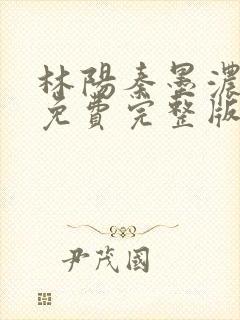 林陽秦墨濃
免費完整版
尹茂國